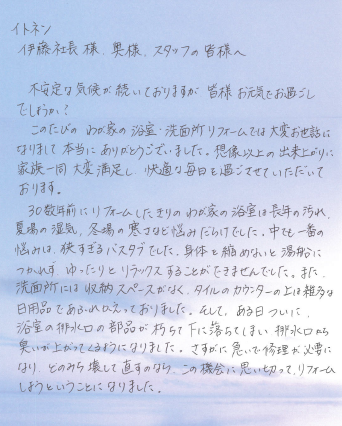 イトネン
伊藤社長様、奥様、スタッフの皆様へ
不安定な気候が続いておりますが 皆様お元気でお過ごし
でしょうか?
このたびの わが家の浴室・洗面所リフォームでは大変お世話に
なりまして本当にありがとうございました。想像以上の出来上がりに
家族一同大変満足し、快適な毎日を過ごさせていただいて
おります。
30数年前にリフォームしたきりのわが家の浴室は長年の汚れ、
夏場の湿気、冬場の寒さなど悩みだらけでした。中でも一番の
悩みは、狭すぎるバスタブでした。身体を縮めないと湯船に
つかれず、ゆったりとリラックスすることができませんでした。また、
洗面所には収納スペースがなく、タイルのカウンターの上は雑多な
日用品であふれかえっておりました。そして、ある日ついに、
浴室の排水口の部品が朽ちて下に落ちてしまい 排水口から
臭いが上がってくるようになりました。さすがに急いで修理が必要に
なり、どのみち壊して直すのなら、この機会に思い切って、リフォーム
しようということになりました。